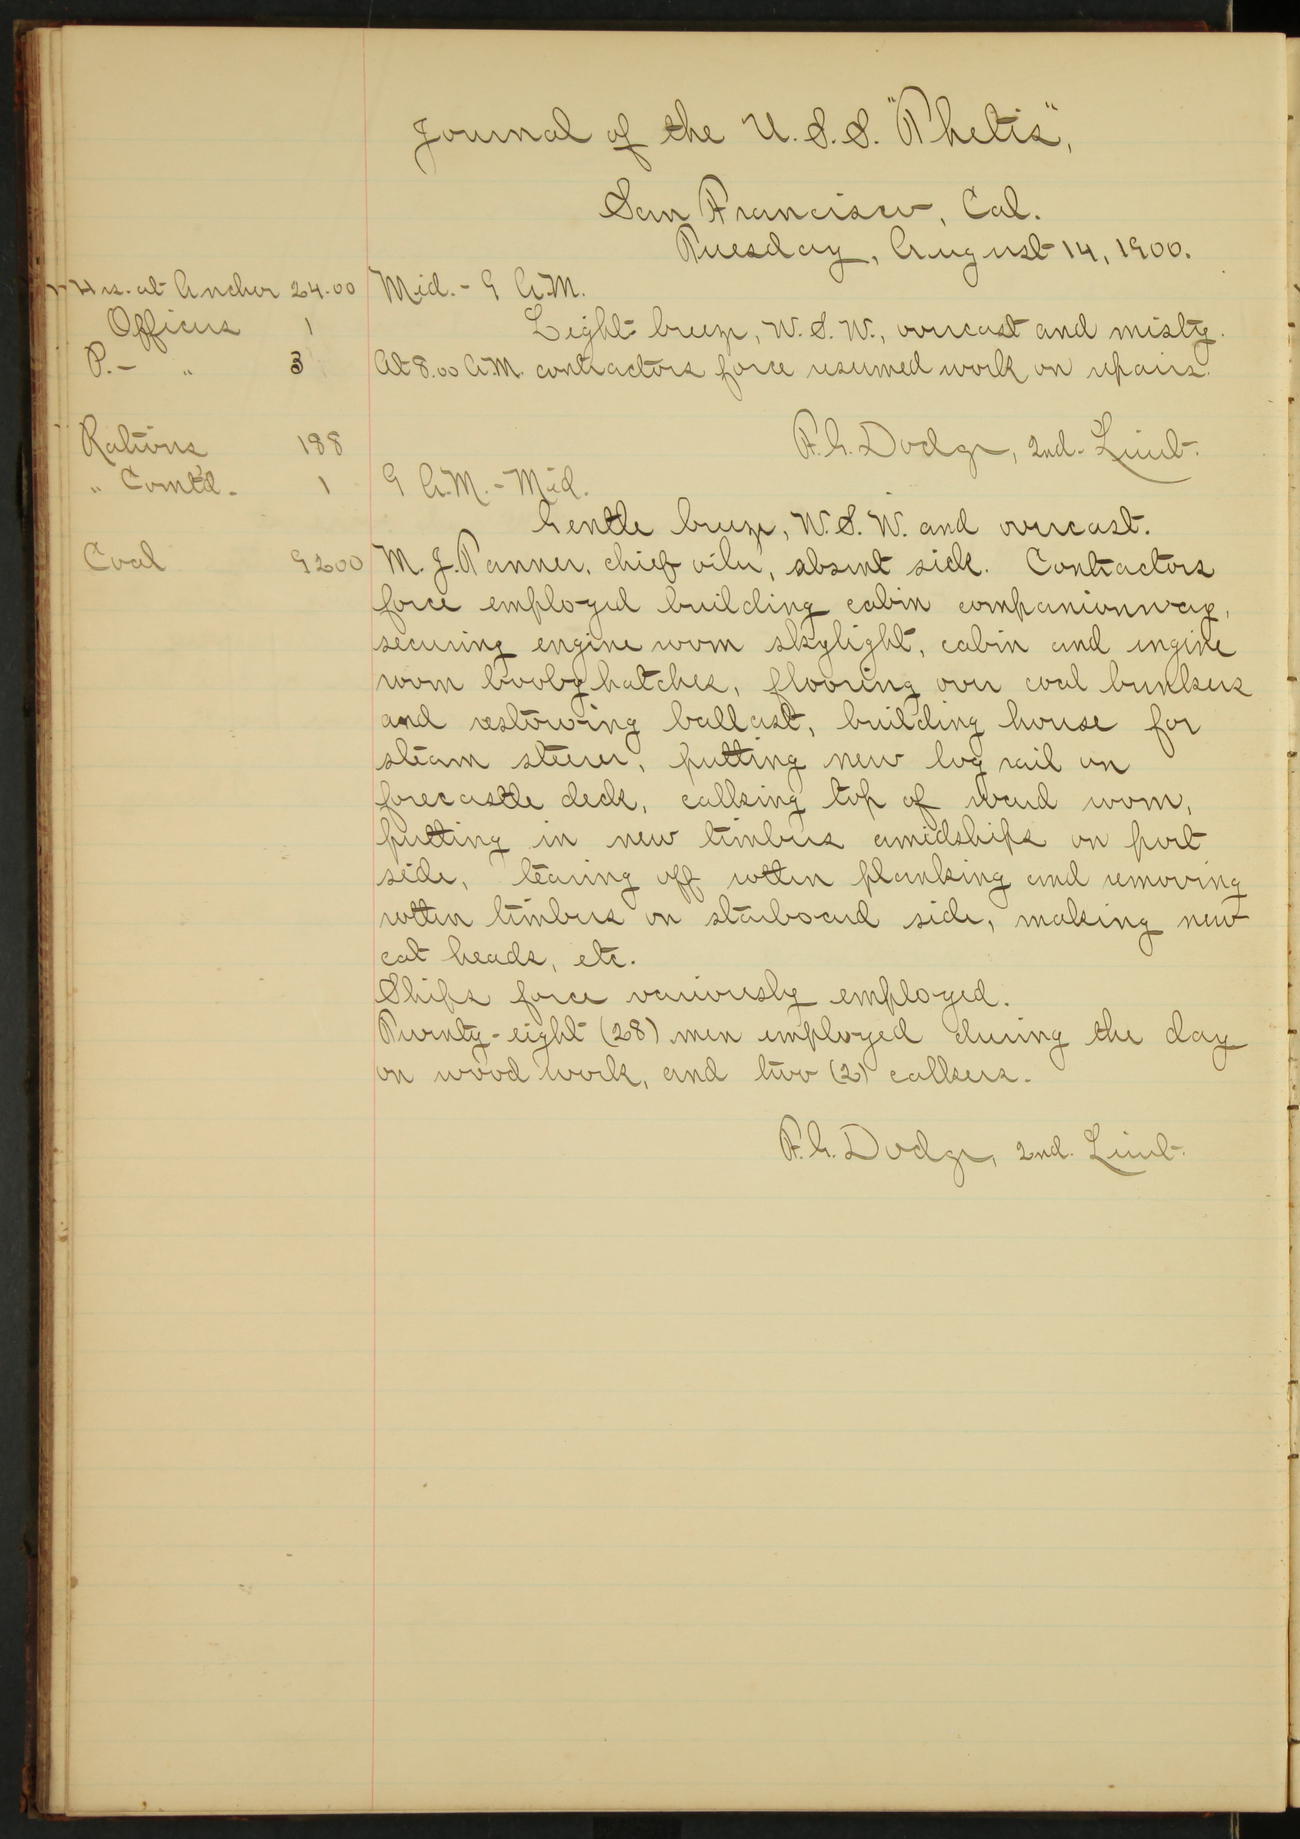 Journal of the U.S.S. "Thetis",
San Francisco, Cal.
Tuesday, August 14, 1900.
Hrs. at Anchor 24.00
Officers 1
P.- " 3
Rations 188
" Com'td. 1
Coal 9200
Mid. - 9 A.M.
Light breeze, W.S.W., overcast and misty.
At 8.00 A.M. contractors force resumed work on repairs.
F.G. Dodge, 2nd. Lieut.
9 A.M. - Mid.
Gentle breeze, W.S.W. and overcast.
M. J. Tanner, chief oiler, absent sick. Contractors
force employed building cabin companionway,
securing engine room skylight, cabin and engine
room booby hatches, flooring over coal bunkers
and restowing ballast, building house for
steam steerer, putting new log rail on
forecastle deck, calking top of ward room,
putting in new timbers amidships on port
side, tearing off rotten planking and removing
rotten timbers on starboard side, making new
cat heads, etc.
Ships force variously employed.
Twenty-eight (28) men employed during the day
on wood work, and two (2) calkers.
F.G. Dodge, 2nd. Lieut.